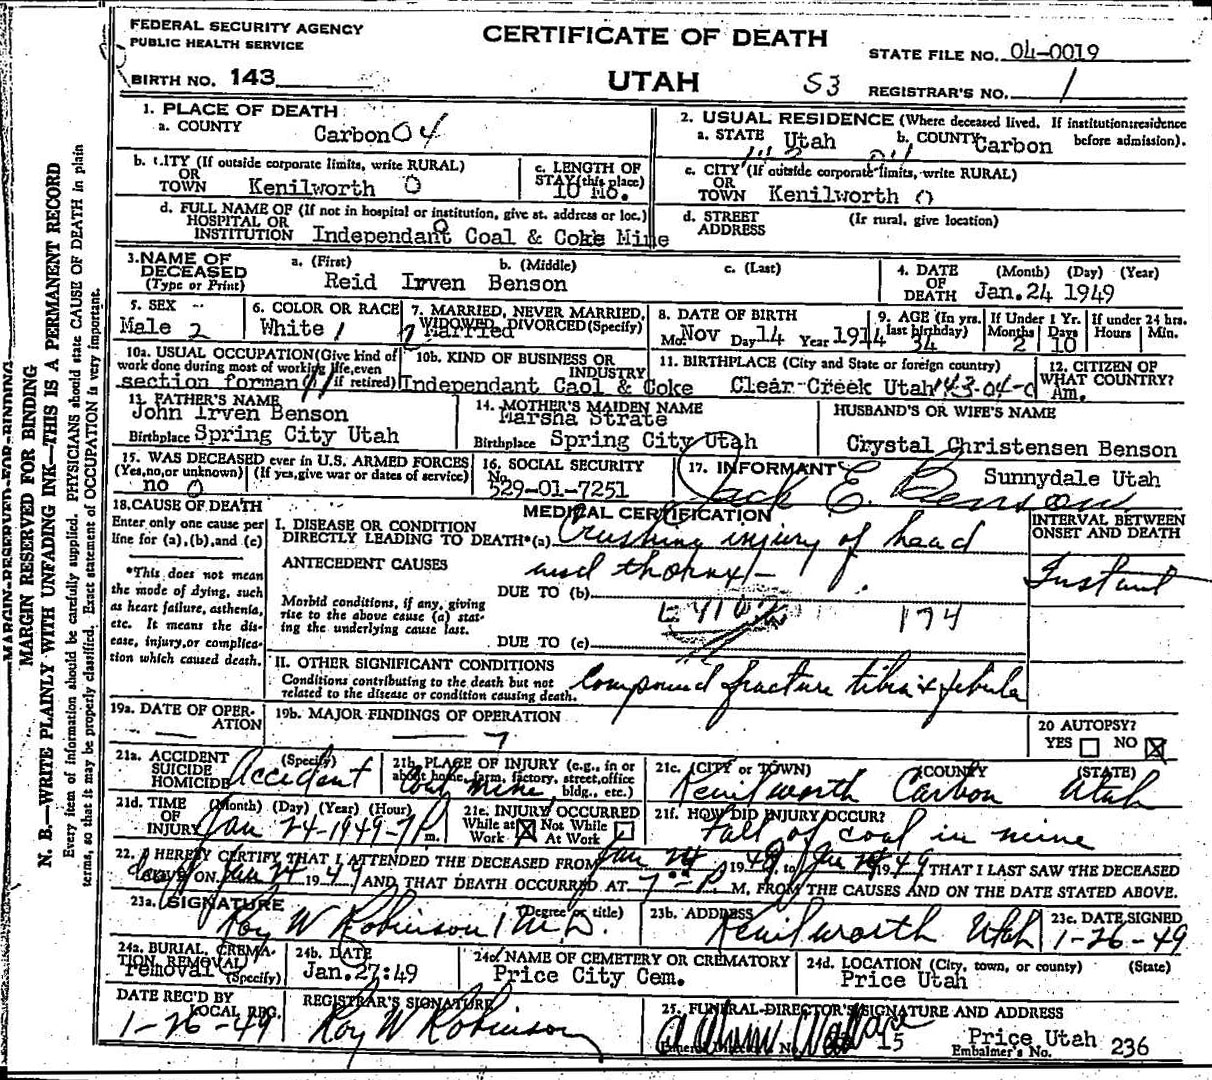 FEDERAL SECURITY AGENCY
PUBLIC HEALTH SERVICE
CERTIFICATE OF DEATH
STATE FILE NO. 04-0019
BIRTH NO. 143
UTAH
S3
REGISTRAR'S NO. 1
MARGIN RESERVED FOR BINDING
N. B.—WRITE PLAINLY WITH UNFADING INK—THIS IS A PERMANENT RECORD
Every item of information should be carefully supplied. PHYSICIANS should state CAUSE OF DEATH in plain
terms, so that it may be properly classified. Exact statement of OCCUPATION is very important.
1. PLACE OF DEATH
a. COUNTY Carbon 04
b. CITY (If outside corporate limits, write RURAL)
OR
TOWN Kenilworth 0
c. LENGTH OF
STAY (this place)
10 Mo.
d. FULL NAME OF (If not in hospital or institution, give st. address or loc.)
HOSPITAL OR
INSTITUTION Independant Coal & Coke Mine
2. USUAL RESIDENCE (Where deceased lived. If institution:residence
before admission).
a. STATE Utah b. COUNTY Carbon
c. CITY (If outside corporate limits, write RURAL)
OR
TOWN Kenilworth 0
d. STREET (If rural, give location)
ADDRESS
3. NAME OF
DECEASED
(Type or Print)
a. (First) b. (Middle) c. (Last)
Reid Irven Benson
4. DATE (Month) (Day) (Year)
OF
DEATH Jan. 24 1949
5. SEX
Male 2
6. COLOR OR RACE
White 1
7. MARRIED, NEVER MARRIED,
WIDOWED, DIVORCED (Specify)
Married
8. DATE OF BIRTH
Mo. Nov Day 14 Year 1914
9. AGE (In yrs. last birthday) 34
If Under 1 Yr. Months 2 Days 10
If under 24 hrs. Hours Min.
10a. USUAL OCCUPATION (Give kind of
work done during most of working life, even
if retired)
section forman
10b. KIND OF BUSINESS OR
INDUSTRY
Independant Caol & Coke
11. BIRTHPLACE (City and State or foreign country)
Clear Creek Utah 143-04-0
12. CITIZEN OF
WHAT COUNTRY?
Am.
13. FATHER'S NAME
John Irven Benson
Birthplace Spring City Utah
14. MOTHER'S MAIDEN NAME
Marsha Strate
Birthplace Spring City Utah
HUSBAND'S OR WIFE'S NAME
Crystal Christensen Benson
15. WAS DECEASED ever in U.S. ARMED FORCES
(Yes, no, or unknown) (If yes, give war or dates of service)
no 0
16. SOCIAL SECURITY
No.
529-01-7251
17. INFORMANT Sunnydale Utah
Jack E. Benson
18. CAUSE OF DEATH
Enter only one cause per
line for (a), (b), and (c)
*This does not mean
the mode of dying, such
as heart failure, asthenia,
etc. It means the dis-
ease, injury, or complica-
tion which caused death.
MEDICAL CERTIFICATION
I. DISEASE OR CONDITION
DIRECTLY LEADING TO DEATH*(a) Crushing injury of head
and thorax—
ANTECEDENT CAUSES
DUE TO (b)
Morbid conditions, if any, giving
rise to the above cause (a) stat-
ing the underlying cause last.
174
DUE TO (c)
II. OTHER SIGNIFICANT CONDITIONS
Conditions contributing to the death but not
related to the disease or condition causing death.
Compound fracture tibia & febula
INTERVAL BETWEEN
ONSET AND DEATH
Instant
19a. DATE OF OPER-
ATION
19b. MAJOR FINDINGS OF OPERATION
20 AUTOPSY?
YES NO X
21a. ACCIDENT (Specify)
SUICIDE
HOMICIDE
Accident
21b. PLACE OF INJURY (e.g., in or
about home, farm, factory, street, office
bldg., etc.)
Coal mine
21c. (CITY or TOWN) (COUNTY) (STATE)
Kenilworth Carbon Utah
21d. TIME (Month) (Day) (Year) (Hour)
OF
INJURY Jan 24-1949-7P m.
21e. INJURY OCCURRED
While at Work X Not While At Work
21f. HOW DID INJURY OCCUR?
Fall of coal in mine
22. I HEREBY CERTIFY THAT I ATTENDED THE DECEASED FROM Jan 24 1949, to Jan 24 1949 THAT I LAST SAW THE DECEASED
ALIVE ON Jan 24 1949 AND THAT DEATH OCCURRED AT 7 P. M, FROM THE CAUSES AND ON THE DATE STATED ABOVE.
23a. SIGNATURE (Degree or title)
Roy W Robinson M.D.
23b. ADDRESS
Kenilworth Utah
23c. DATE SIGNED
1-26-49
24a. BURIAL, CREMA-
TION, REMOVAL
(Specify)
removal
24b. DATE
Jan. 27:49
24c. NAME OF CEMETERY OR CREMATORY
Price City Cem.
24d. LOCATION (City, town, or county) (State)
Price Utah
DATE REC'D BY
LOCAL REG.
1-26-49
REGISTRAR'S SIGNATURE
Roy W Robinson
25. FUNERAL DIRECTOR'S SIGNATURE AND ADDRESS
Wallace
Price Utah
15
Embalmer's No. 236